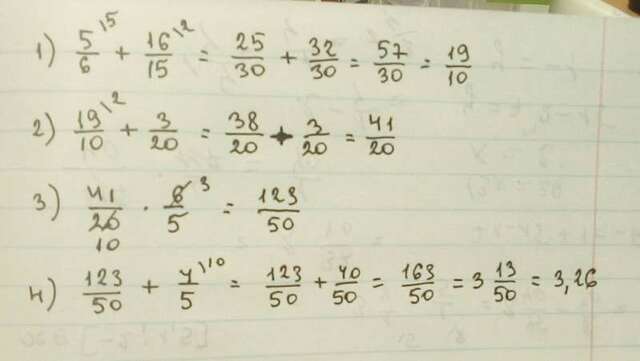 1) 5/6 \5 + 16/15 \2 = 25/30 + 32/30 = 57/30 = 19/10
2) 19/10 \2 + 3/20 = 38/20 + 3/20 = 41/20
3) 41/20 10 · 6/5 3 = 123/50
4) 123/50 + 4/5 \10 = 123/50 + 40/50 = 163/50 = 3 13/50 = 3,26